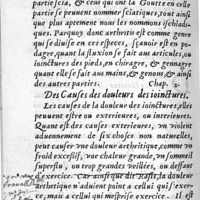 partie scia, & ceus qui ont la Goutte en celle
partie se peuvent nommer sciatiques, tout ainsi
que plus aptement nous les nommons ischiadi-
ques. Parquoy donc arthritis est comme genre
qui se divise en ces especes, sçavoir est en po-
dagre, quant la fluxion se fait aus articules, ou
ioinctures des pieds, en chiragre, & gennagre
quant elle se fait aus mains, & genons, & ainsi
des autres parties. Chap. 2.
Des Causes des douleurs des ioinctures.
Les causes de la douleur des ioinctures, elles
peuvent estre ou exterieures, ou interieures.
Quant est des causes exterieures, un violent
avoiennement de six choses non naturelles,
peut causer une douleur arthritique, comme un
froid excessif, une chaleur grande, un sommeil
superflu, ou trop grandes veillées, ou deffaut
d'exercice. Car ainsi que dit la douleur
arthetique n'advient point a celluy qui s'exer-
ce, mais a celluy qui s'exerce mal. Il est